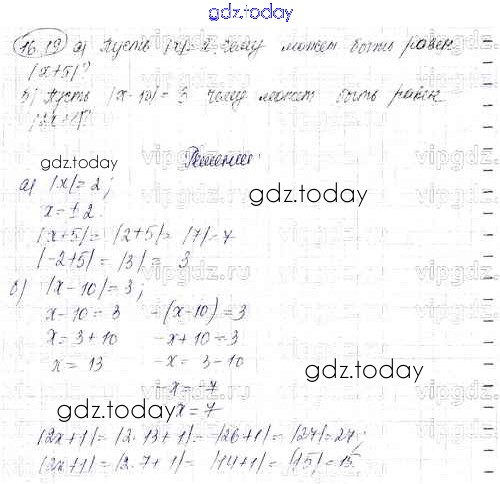 gdz.today
16.19 а) Пусть |x|=2. чему может быть равен
|x+5|?
б) Пусть |x-10|= 3 чему может быть равен
|2x+1|?
Решение.
gdz.today
а) |x|= 2;
gdz.today
x=±2.
|x+5|= |2+5|= |7|=7
|-2+5|= |3|= 3
б) |x-10|=3;
x-10=3 -(x-10)=3
x=3+10 -x+10=3
x= 13 -x= 3-10
gdz.today
-x= -7
gdz.today
x=7
|2x+1|= |2·13+1|= |26+1|= |27|=27;
|2x+1|= |2·7+1|= |14+1|= |15|=15.
vipgdz.ru